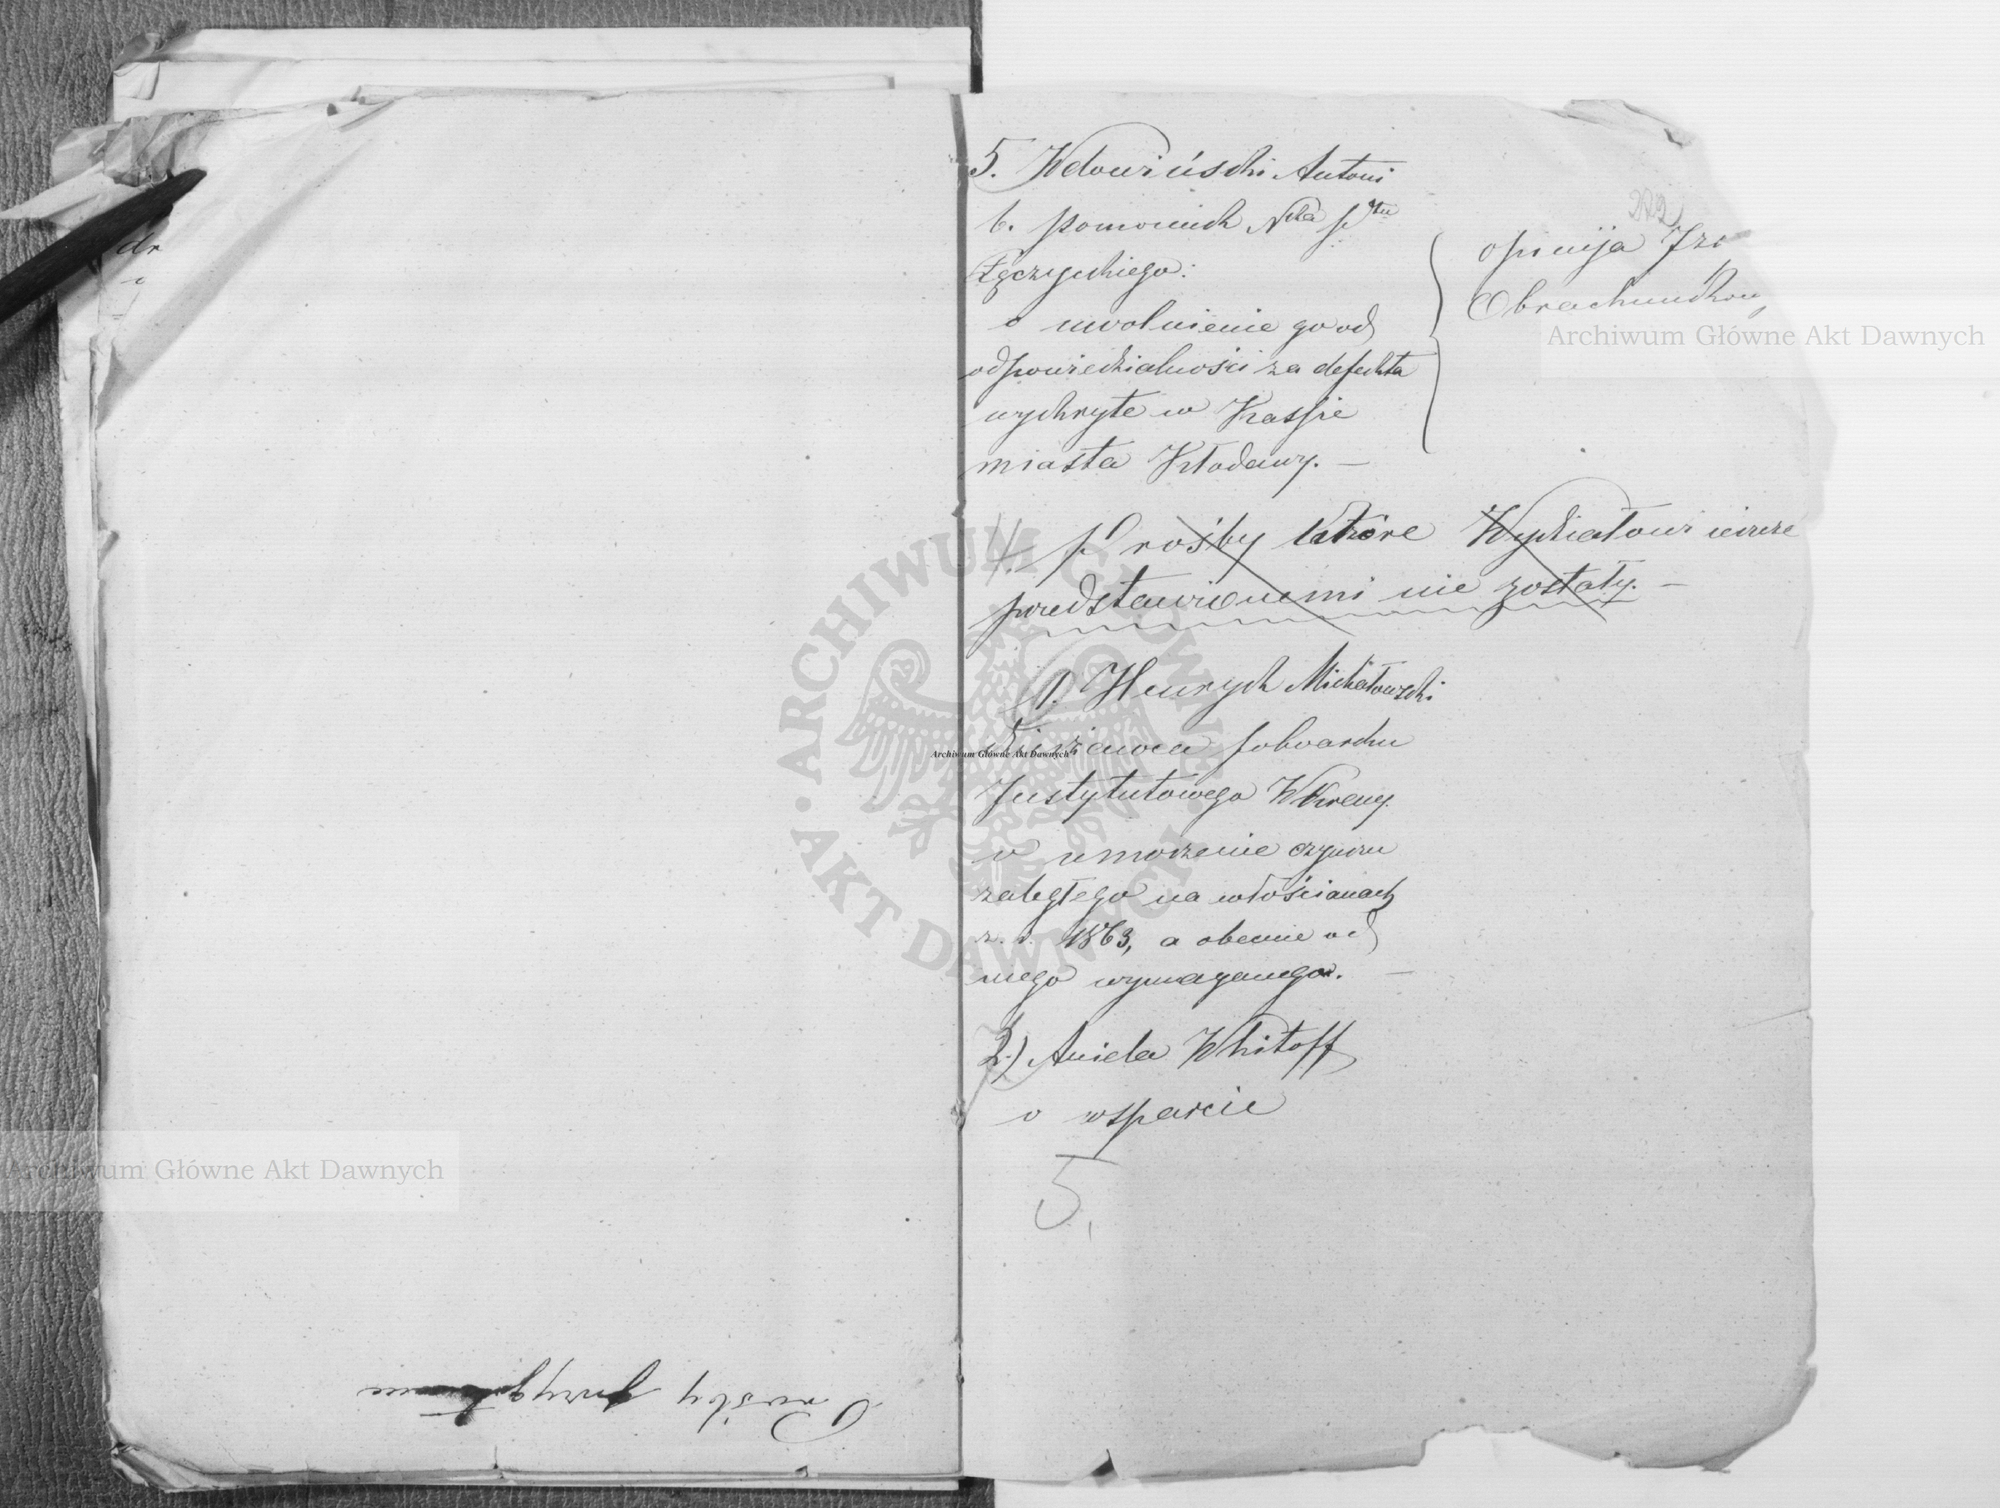 222
5. Wdowiński Antoni
b. pomocnik Nka ptu
Łęczyckiego:
o uwolnienie go od
odpowiedzialności za defekta
wykryte w Kassie
miasta Kłodawy. —
opinija Izb
Obrachunkow
Prośby które Wydziałowi ieszcze
przedstawionemi nie zostały. —
1. Henryk Michałowski
dzierżawca folwarku
Instytutowego
o umorzenie czynszu
zaległego na włościanach
z. r. 1863, a obecnie od
niego wymaganego. —
2.) Aniela Whitoff
o wsparcie
5,
Prośby przyjęte
Archiwum Główne Akt Dawnych
Archiwum Główne Akt Dawnych
Archiwum Główne Akt Dawnych
ARCHIWUM GŁÓWNE AKT DAWNYCH